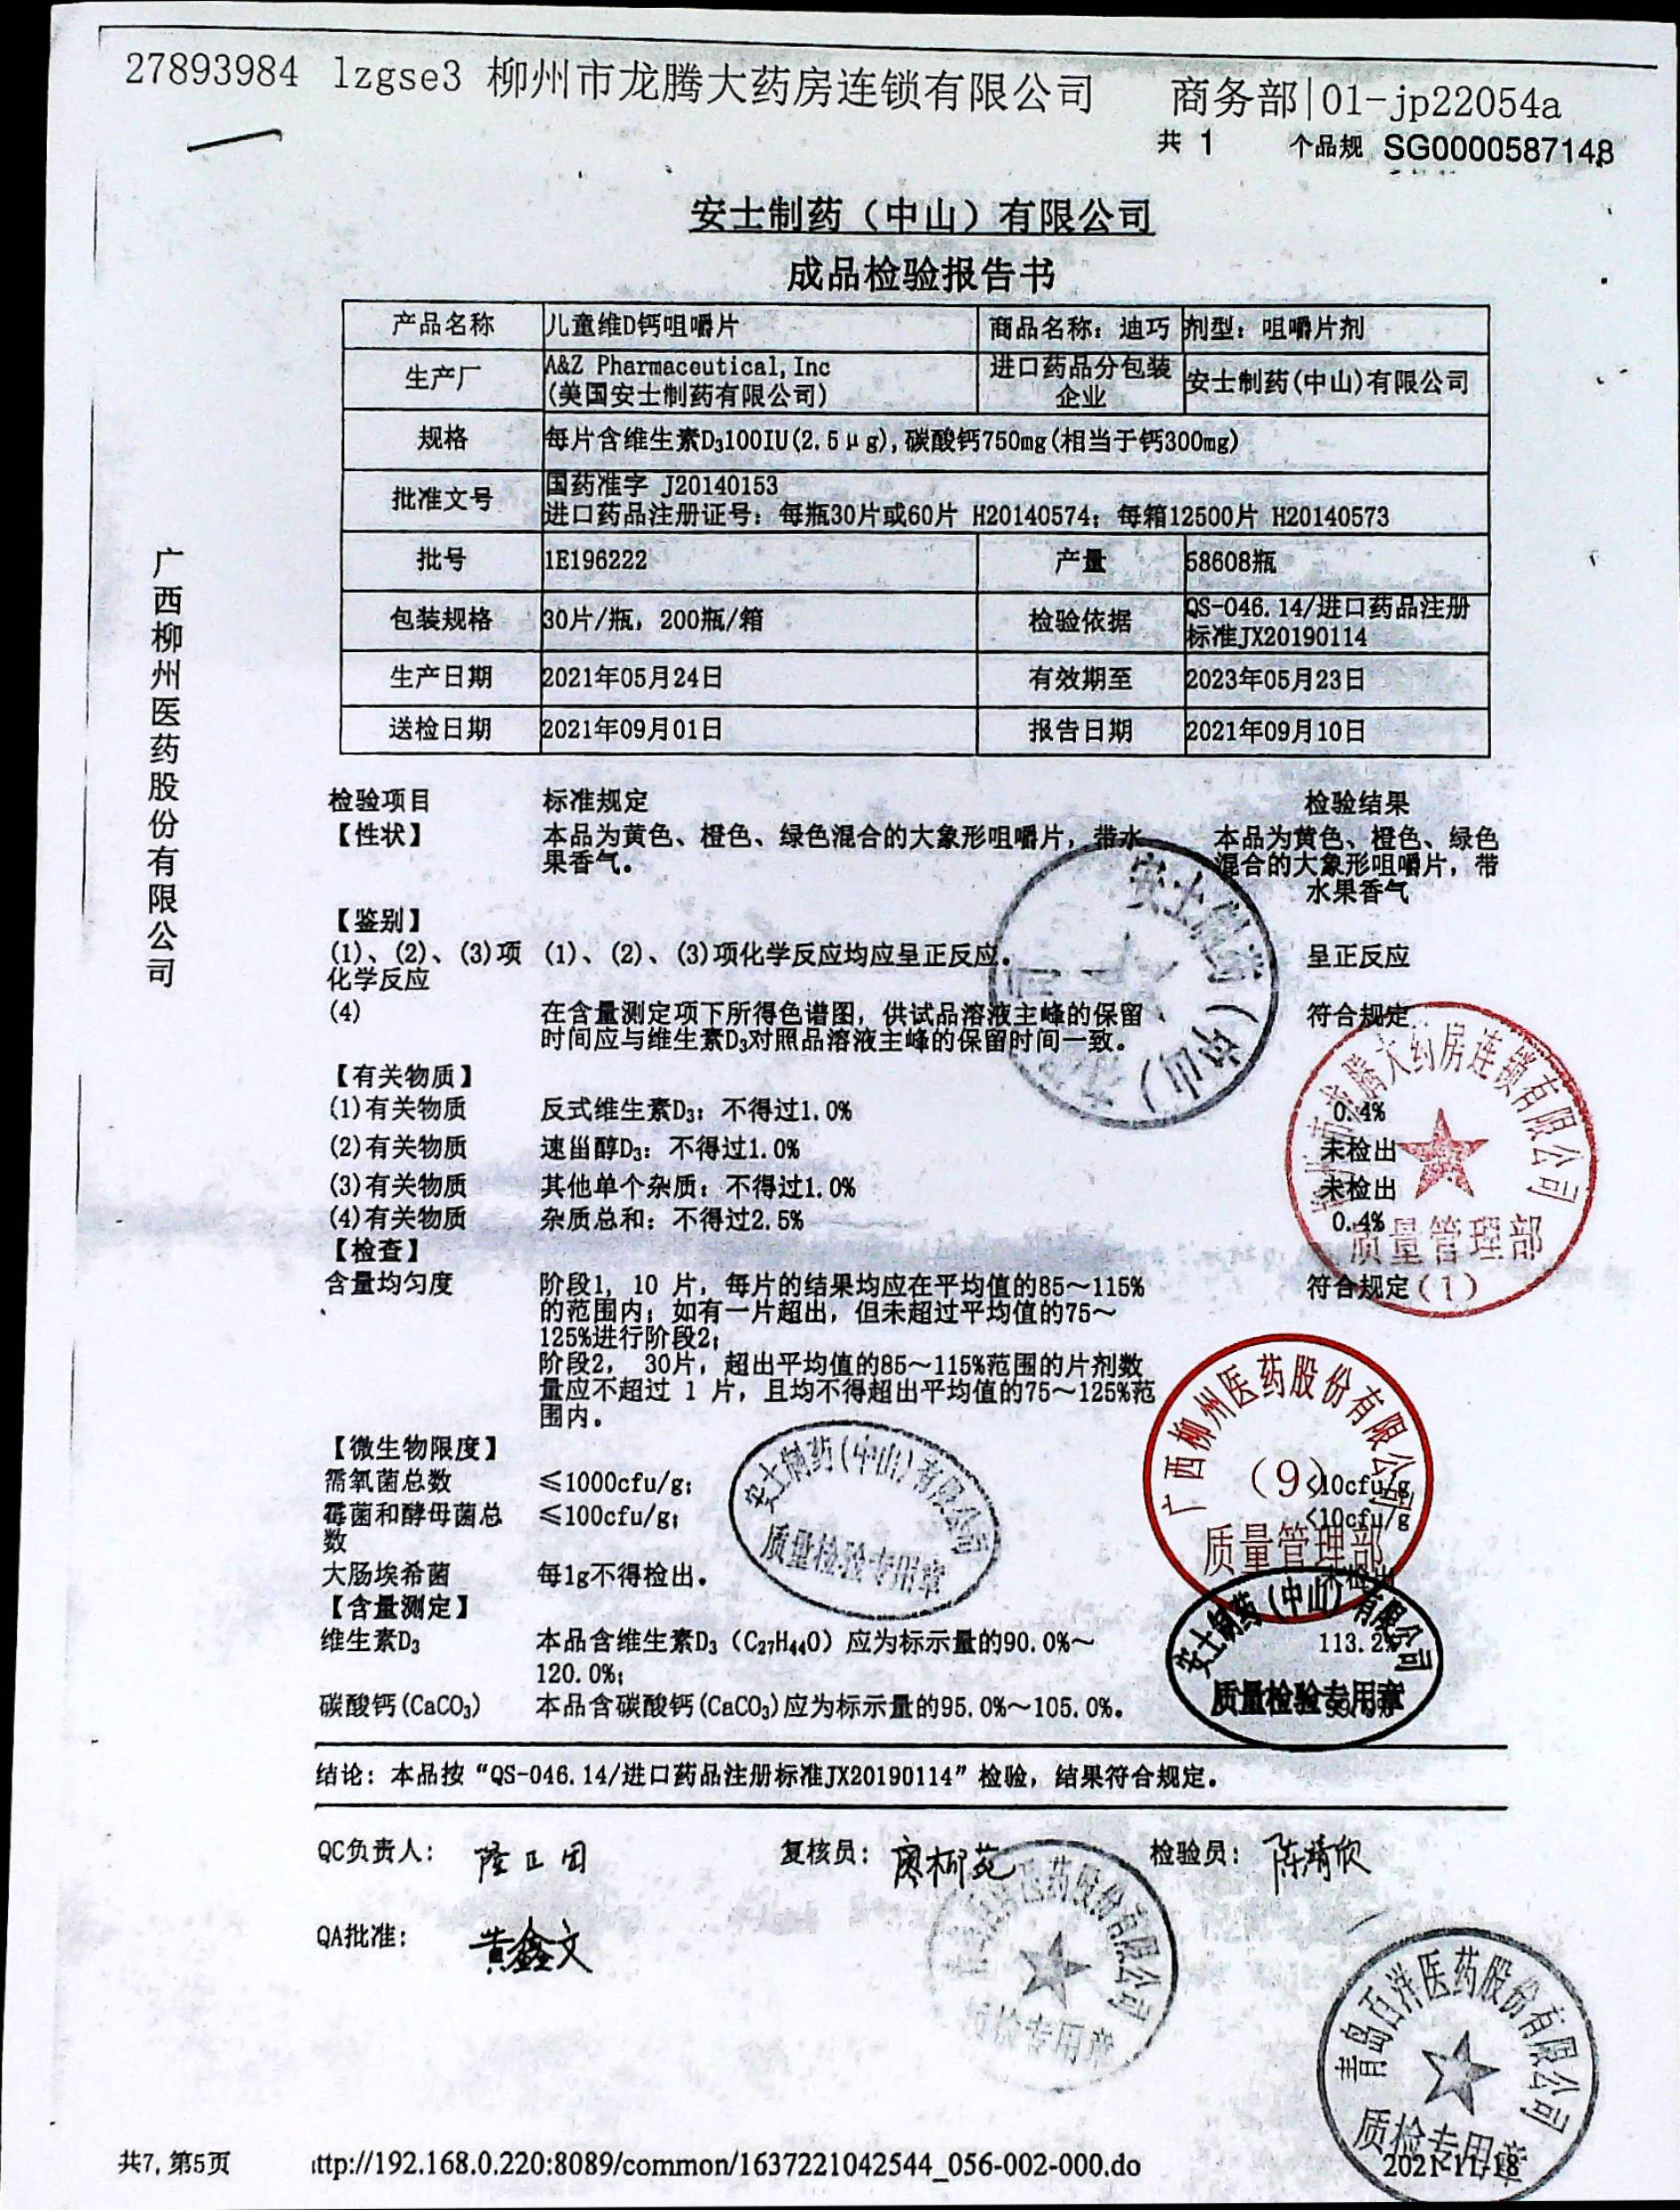 27893984 lzgse3 柳州市龙腾大药房连锁有限公司 商务部|01-jp22054a
共 1 个品规 SG0000587148
安士制药（中山）有限公司
成品检验报告书
产品名称 儿童维D钙咀嚼片 商品名称：迪巧 剂型：咀嚼片剂
生产厂 A&Z Pharmaceutical, Inc
(美国安士制药有限公司) 进口药品分包装
企业 安士制药(中山)有限公司
规格 每片含维生素D₃100IU(2.5μg),碳酸钙750mg(相当于钙300mg)
批准文号 国药准字 J20140153
进口药品注册证号：每瓶30片或60片 H20140574；每箱12500片 H20140573
批号 1E196222 产量 58608瓶
包装规格 30片/瓶，200瓶/箱 检验依据 QS-046.14/进口药品注册
标准JX20190114
生产日期 2021年05月24日 有效期至 2023年05月23日
送检日期 2021年09月01日 报告日期 2021年09月10日
广西柳州医药股份有限公司
检验项目 标准规定 检验结果
【性状】 本品为黄色、橙色、绿色混合的大象形咀嚼片，带水
果香气。
本品为黄色、橙色、绿色
混合的大象形咀嚼片，带
水果香气
【鉴别】
(1)、(2)、(3)项
化学反应
(1)、(2)、(3)项化学反应均应呈正反应。 呈正反应
(4) 在含量测定项下所得色谱图，供试品溶液主峰的保留
时间应与维生素D₃对照品溶液主峰的保留时间一致。
符合规定
【有关物质】
(1)有关物质 反式维生素D₃：不得过1.0% 0.4%
(2)有关物质 速甾醇D₃：不得过1.0% 未检出
(3)有关物质 其他单个杂质：不得过1.0% 未检出
(4)有关物质 杂质总和：不得过2.5% 0.4%
【检查】
含量均匀度 阶段1，10 片，每片的结果均应在平均值的85～115% 符合规定
的范围内；如有一片超出，但未超过平均值的75～
125%进行阶段2；
阶段2， 30片，超出平均值的85～115%范围的片剂数
量应不超过 1 片，且均不得超出平均值的75～125%范
围内。
【微生物限度】
需氧菌总数 ≤1000cfu/g； <10cfu/g
霉菌和酵母菌总
数
≤100cfu/g； <10cfu/g
大肠埃希菌 每1g不得检出。
【含量测定】
维生素D₃ 本品含维生素D₃（C₂₇H₄₄O）应为标示量的90.0%～
120.0%；
113.2%
碳酸钙(CaCO₃) 本品含碳酸钙(CaCO₃)应为标示量的95.0%～105.0%。
安士制药（中山）
龙腾大药房连锁有限公司
质量管理部
(1)
广西柳州医药股份有限公司
(9)
质量管理部
安士制药(中山)有限公司
质量检验专用章
安士制药(中山)有限公司
质量检验专用章
结论：本品按“QS-046.14/进口药品注册标准JX20190114”检验，结果符合规定。
QC负责人： 复核员：廖柳苑 检验员：陈靖欣
QA批准：黄鑫文
医药股份有限公司
质检专用章
青岛百洋医药股份有限公司
质检专用章
共7, 第5页 ttp://192.168.0.220:8089/common/1637221042544_056-002-000.do 2021-11-18